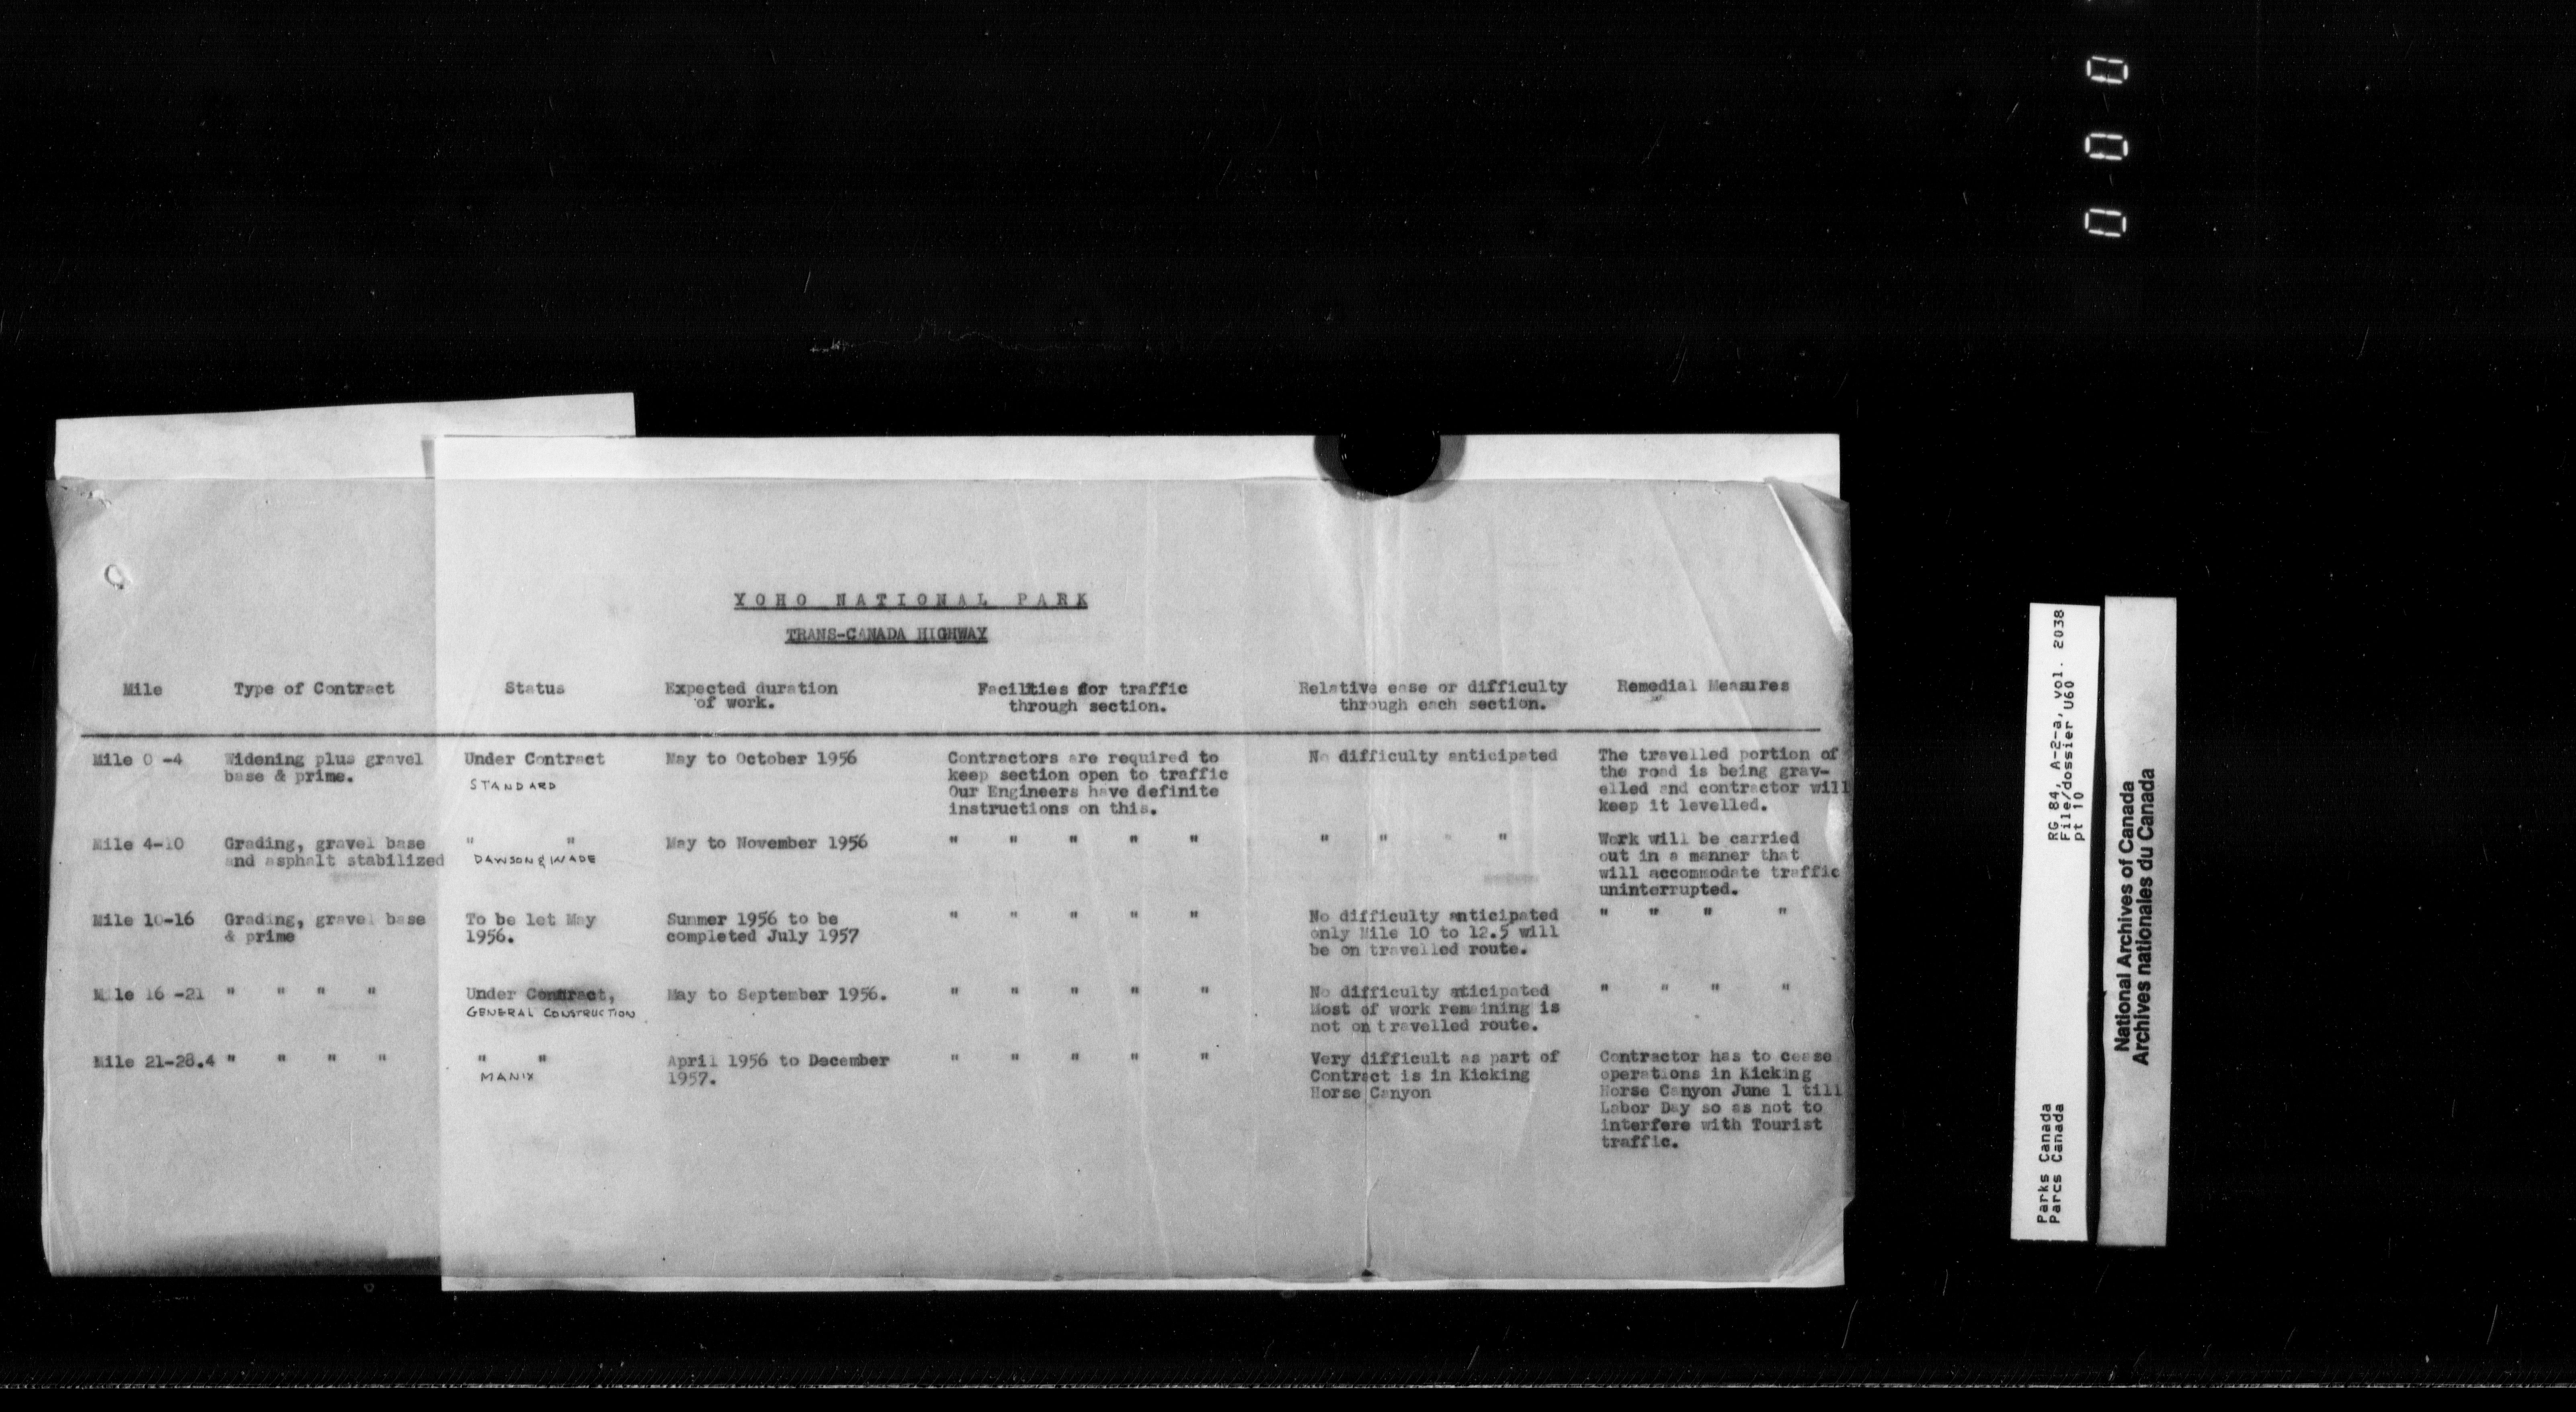 YOHO NATIONAL PARK
TRANS-CANADA HIGHWAY
Mile Type of Contract Status Expected duration of work. Facilities for traffic through section. Relative ease or difficulty through each section. Remedial Measures
Mile 0 -4
Widening plus gravel
base & prime.
Under Contract
STANDARD
May to October 1956
Contractors are required to
keep section open to traffic
Our Engineers have definite
instructions on this.
No difficulty anticipated
The travelled portion of
the road is being grav-
elled and contractor will
keep it levelled.
Mile 4-10
Grading, gravel base
and asphalt stabilized
" "
DAWSON & WADE
May to November 1956
" " " " "
" " " "
Work will be carried
out in a manner that
will accommodate traffic
uninterrupted.
Mile 10-16
Grading, gravel base
& prime
To be let May
1956.
Summer 1956 to be
completed July 1957
" " " " "
No difficulty anticipated
only Mile 10 to 12.5 will
be on travelled route.
" " " "
Mile 16 -21
" " " "
Under Contract,
GENERAL CONSTRUCTION
May to September 1956.
" " " " "
No difficulty aticipated
Most of work remaining is
not on travelled route.
" " " "
Mile 21-28.4
" " " "
" "
MANIX
April 1956 to December
1957.
" " " " "
Very difficult as part of
Contract is in Kicking
Horse Canyon
Contractor has to cease
operations in Kicking
Horse Canyon June 1 till
Labor Day so as not to
interfere with Tourist
traffic.
0 0 0
RG 84, A-2-a, vol. 2038
File/dossier U60
pt 10
Parks Canada
Parcs Canada
National Archives of Canada
Archives nationales du Canada